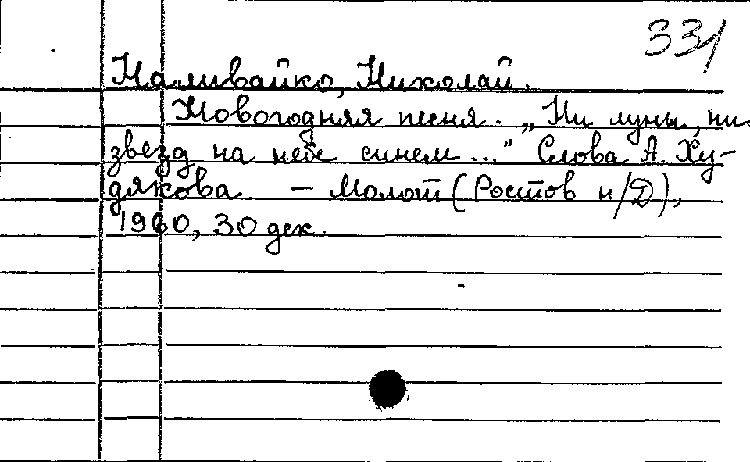 331
Наливайко, Николай.
Новогодняя песня. „Ни луны, ни
звезд на небе синем..." Слова А. Ху-
дякова — Молот (Ростов н/Д),
1960, 30 дек.